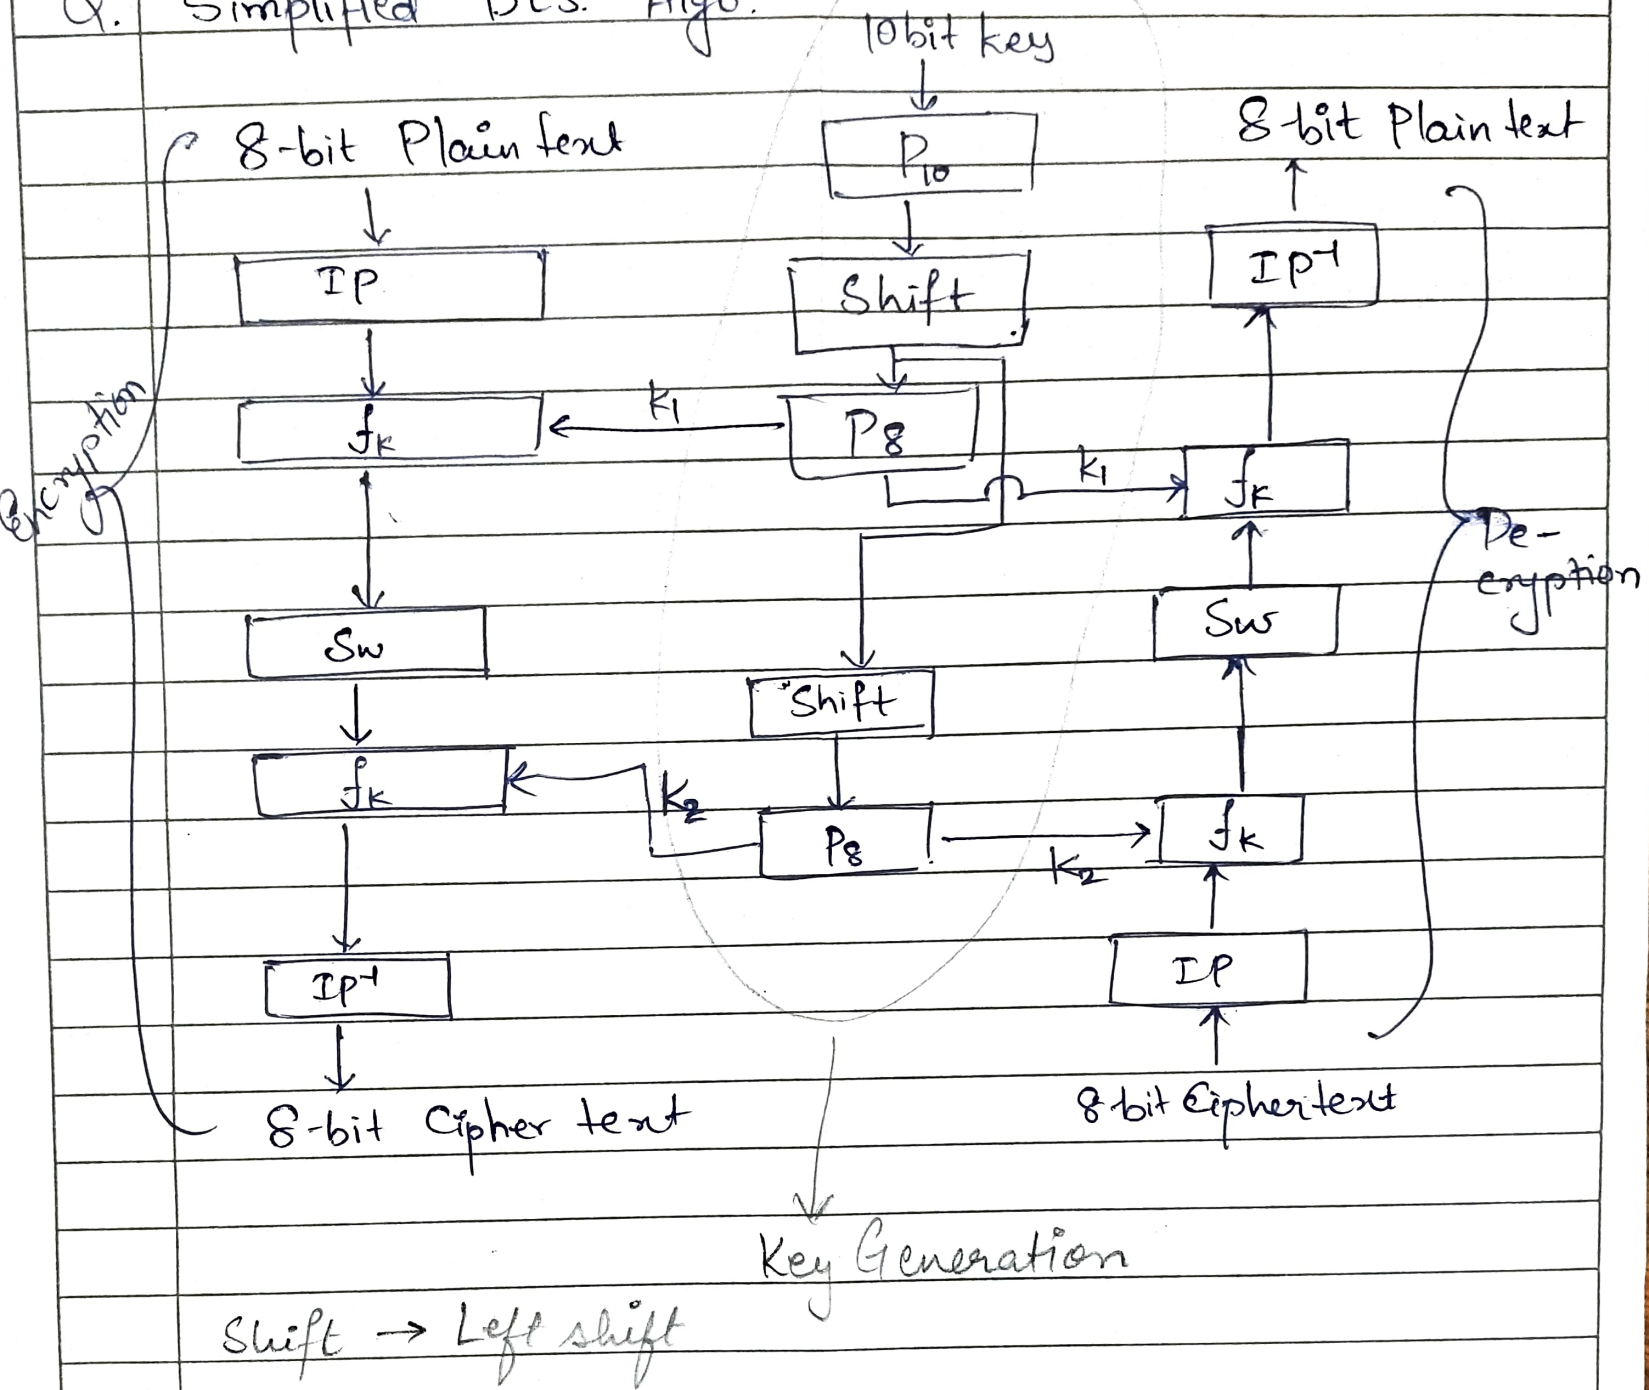 Q. Simplified DES. Algo.
10bit key
8-bit Plain text
P10
8-bit Plain text
IP
Shift
IP-1
fK
K1
P8
K1
fK
Encryption
De-
cryption
Sw
Sw
Shift
fK
K2
P8
K2
fK
IP-1
IP
8-bit Cipher text
8-bit Ciphertext
Key Generation
Shift → Left shift